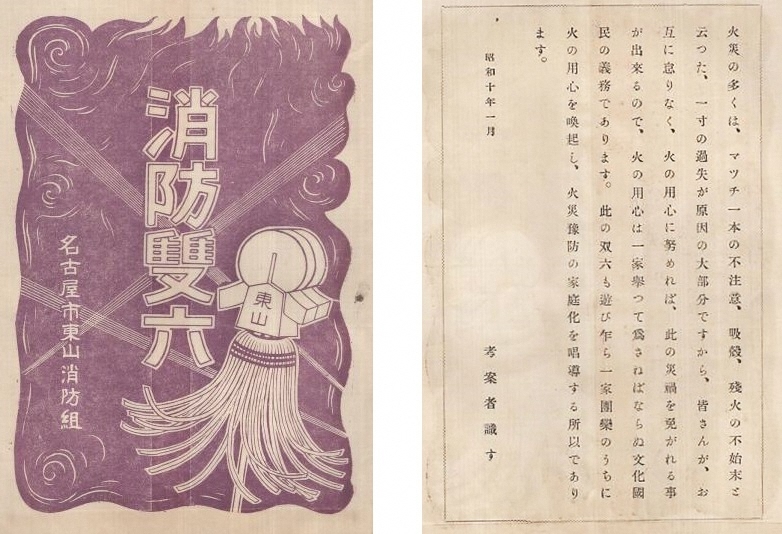 消防雙六
東山
名古屋市東山消防組
火災の多くは、マツチ一本の不注意、吸殻、殘火の不始末と
云つた、一寸の過失が原因の大部分ですから、皆さんが、お
互に怠りなく、火の用心に努めれば、此の災禍を免がれる事
が出來るので、火の用心は一家擧つて爲さねばならぬ文化國
民の義務であります。此の双六も遊び乍ら一家團欒のうちに
火の用心を喚起し、火災豫防の家庭化を唱導する所以であり
ます。
昭和十年一月
考案者識す